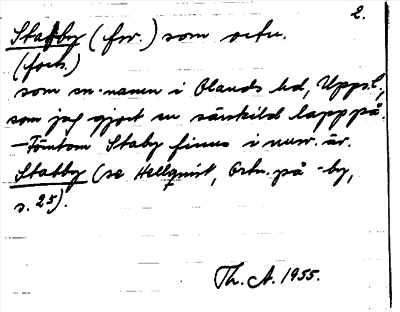 2.
Stabby (fsv.) som ortn.
(forts.)
som sn-namn i Olands hd, Uppsl.,
som jag gjort en särskild lapp på.
– Förutom Staby finns i nuv. är.
Stabby (se Hellquist, Ortn. på -by,
s. 25).
Th. A. 1955.